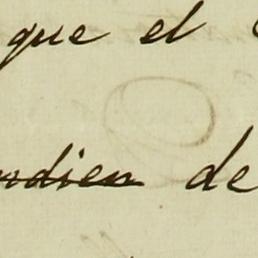 que el
ndien de